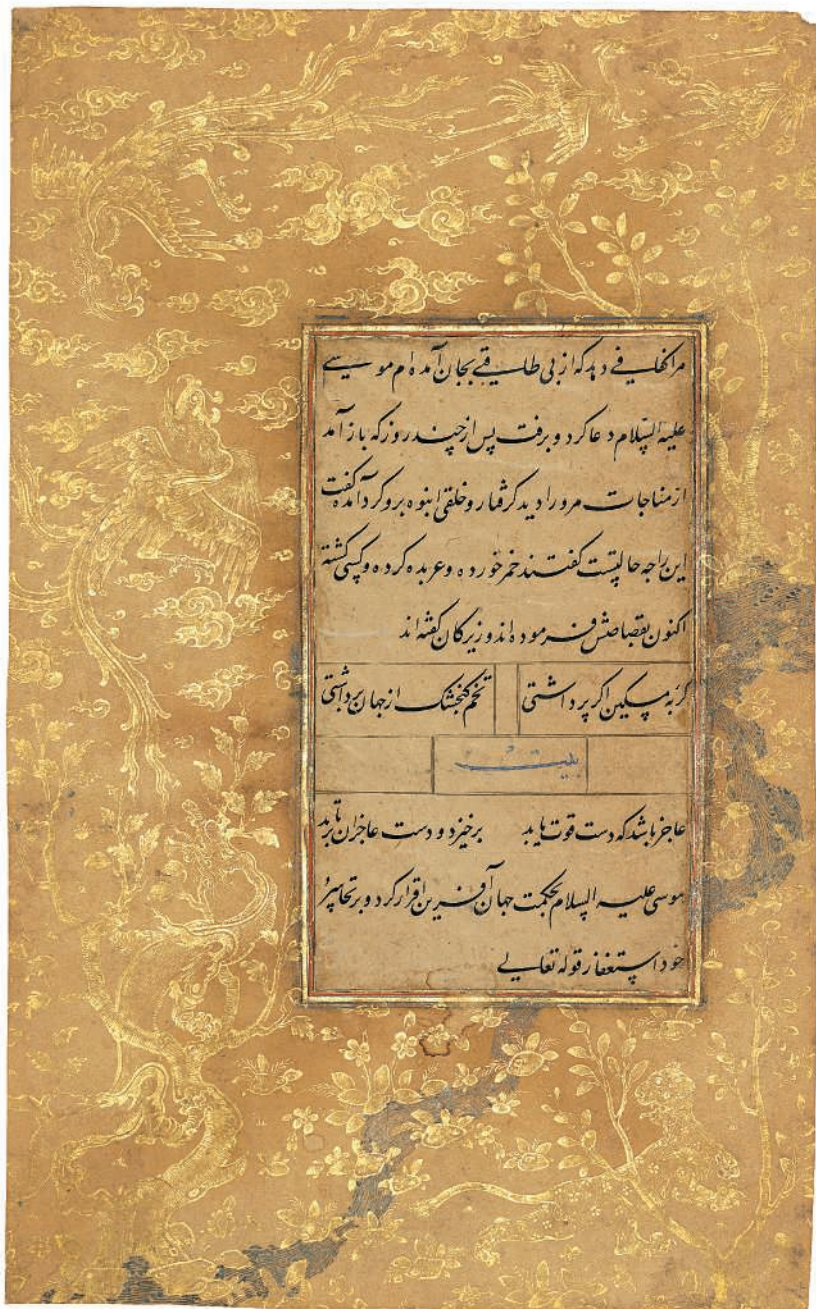 مرا کفافی دهد که از بی طاقتی بجان آمده ام موسی
علیه السلام دعا کرد و برفت پس از چند روز که باز آمد
از مناجات مرورا دید گرفتار و خلقی انبوه برو گرد آمده گفت
این را چه حالتست گفتند خمر خورده و عربده کرده و کسی کشته
اکنون بقصاصش فرموده اند و زیرکان گفته اند
گربه مسکین اگر پر داشتی تخم گنجشک از جهان برداشتی
بیت
عاجز باشد که دست قوت یابد برخیزد و دست عاجزان برتابد
موسی علیه السلام بحکمت جهان آفرین اقرار کرد و بر تجاسر
خود استغفار قوله تعالی